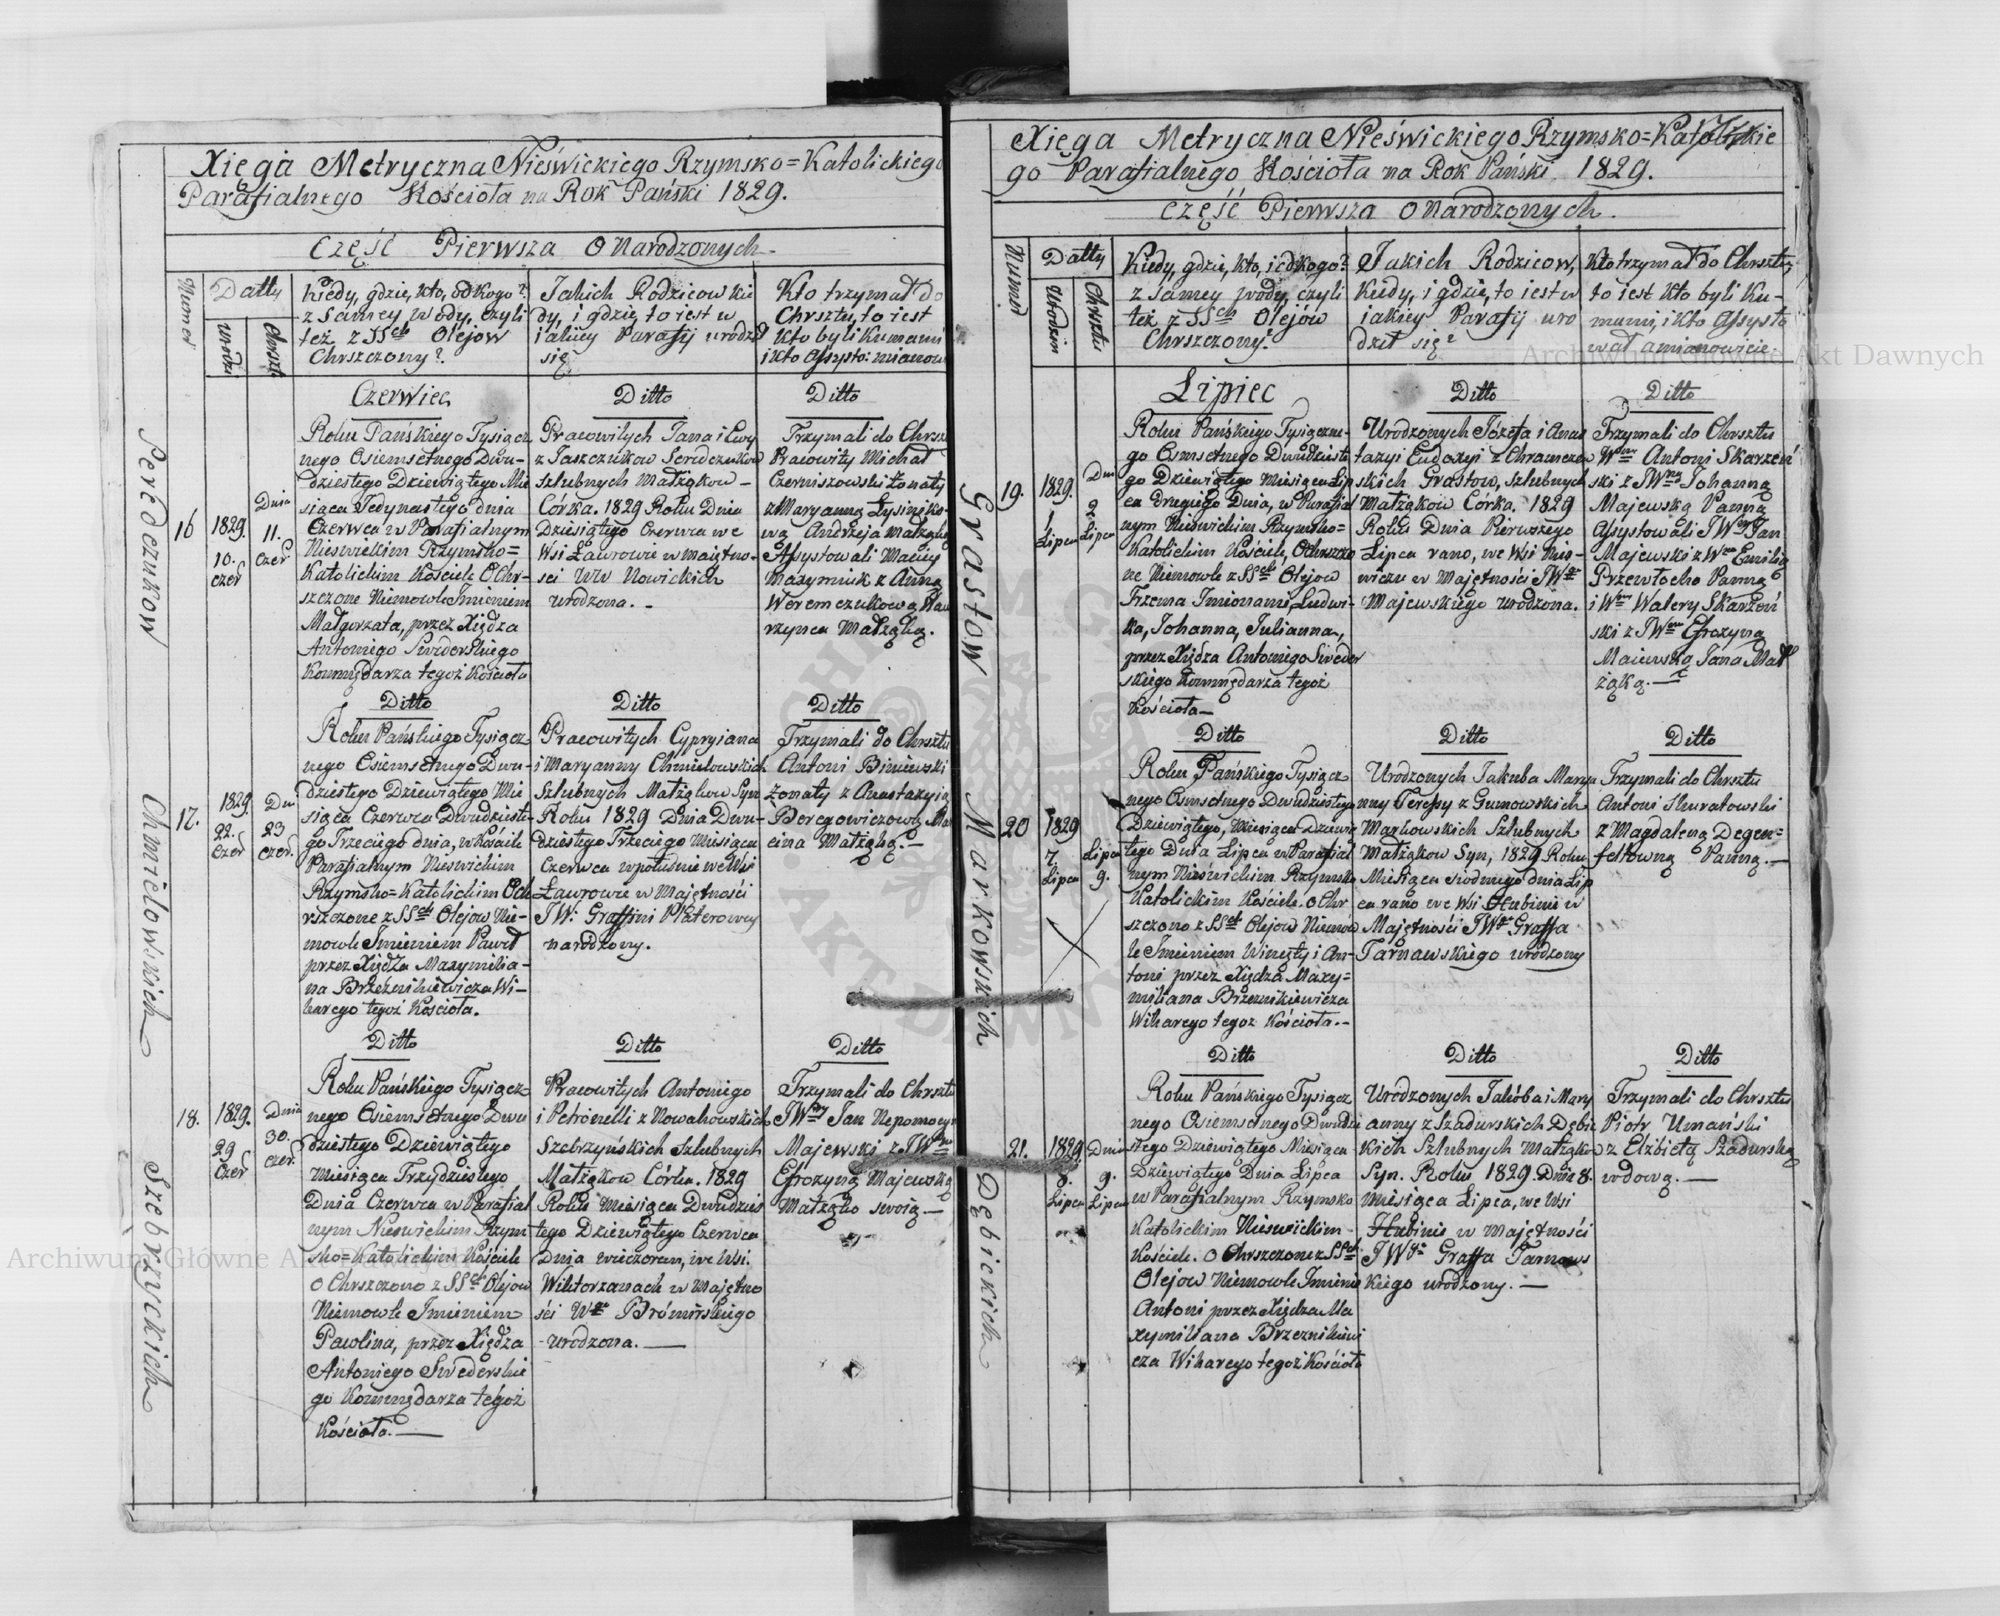 Xięga Metryczna Nieświckiego Rzymsko=Katolickiego
Parafialnego Kościoła na Rok Pański 1829.
Część Pierwsza O Narodzonych.
Numer
Datty
Urodz:
Chrszt:
Kiedy, gdzie, kto, od kogo?
z samey wody, czyli
też z SSch Olejow
Chrszczony?
Jakich Rodzicow kie
dy, i gdzie, to iest w
iakiey Parafij urodził
się
Kto trzymał do
Chrsztu, to iest
kto byli Kumami
i kto Assysto: mianow
Seredczukow
16
1829
10.
czer
Dnia
11.
czer
Czerwiec
Roku Pańskiego Tysiącz
nego Osiemsetnego Dwu-
dziestego Dziewiątego Mie
siąca Jedynastego dnia
Czerwca w Parafialnym
Nieswickim Rzymsko=
Katolickim Kościele Ochr-
szczone Niemowle Imieniem
Małgorzata, przez Xiędza
Antoniego Swiderskiego
Kommędarza tegoż Kościoła
Ditto
Pracowitych Jana i Ewy
z Jaszczukow Seredczukow
szlubnych małżąkow -
Córka. 1829 Roku Dnia
Dziesiątego Czerwca we
Wsi Ławrowie w maiętno-
sci WW Nowickich
urodzona. -
Ditto
Trzymali do Chrsz
Pracowity Michał
Czerniszowski żonaty
z Maryanną Łysinko-
wą Andrzeja małżąką
Assystowali Maciey
Maxymiuk z Anną
Weremczukową Waw
rzynca Małżąką.
Chmielowskich
17.
1829.
22.
czer
Dn
23
czer.
Ditto
Roku Pańskiego Tysiącz
nego Osiemsetnego Dwu-
dziestego Dziewiątego Mie
siąca Czerwca Dwudzieste-
go Trzeciego dnia, w Kościele
Parafialnym Nieswickim
Rzymsko=Katolickim Och
rszczone z SSch Olejow Nie-
mowle Imieniem Paweł
przez Xiędza Maxymilia-
na Brzeźnikiewicza Wi-
karego tegoż Kościoła.
Ditto
Pracowitych Cypryiana
i Maryanny Chmielowskich
Szlubnych Małżąkow Syn
Roku 1829 Dnia Dwu-
dziestego Trzeciego miesiąca
Czerwca wpołudnie we Wsi
Ławrowie w Majętności
JW: Graffini Platerowey
narodzony.
Ditto
Trzymali do Chrsztu
Antoni Biniewski
żonaty z Anastazyią
Beregowiczową Mar
cina Małżąką. -
Szebrzyckich
18.
1829.
29
czer
Dnia
30.
czer.
Ditto
Roku Pańskiego Tysiącz-
nego Osiemsetnego Dwu
dziestego Dziewiątego
Miesiąca Trzydziestego
Dnia Czerwca w Parafial
nym Nieswickim Rzym
sko=Katolickim Kościele
O Chrszczono z SSch Olejow
Niemowle Imieniem
Pawlina, przez Xiędza
Antoniego Swederskie
go Kommędarza tegoż
Kościoła.
Ditto
Pracowitych Antoniego
i Petronelli z Nowakowskich
Szebrzyńskich Szlubnych
Małżąkow Córka. 1829
Roku miesiąca Dwudzies
tego Dziewiątego Czerwca
Dnia wieczorem, we Wsi
Wiktorzanach w Majętno
ści Wgo Bromirskiego
-urodzona. -
Ditto
Trzymali do Chrsztu
JWny Jan Nepomocyn
Majewski z JWną
Efrozyną Majewską
Małżąko swoią -
Xięga Metryczna Nieświckiego Rzymsko=Katolickie
go Parafialnego Kościoła na Rok Pański 1829.
Część Pierwsza O Narodzonych.
Numer
Datty
Urodzin
Chrsztu
Kiedy, gdzie, kto, i od kogo?
z samey wody, czyli
też z SSch Olejów
Chrszczony?
Jakich Rodzicow,
kiedy, i gdzie, to iest w
iakiey Parafij uro
dził się?
Kto trzymał do Chrsztu,
to iest kto byli Ku-
mami, i kto Assysto
wał a mianowicie.
Grastow
19.
1829.
1
Lipca
Dnia
2
Lipca
Lipiec
Roku Pańskiego Tysiączne-
go Osmsetnego Dwudzieste
go Dziewiątego Miesiąca Lip
ca Drugiego Dnia, w Parafial
nym Nieswickim Rzymsko=
Katolickim Kościele, Ochrszczo
ne Niemowle z SSch Olejow
Trzema Imionami, Ludwi-
ka, Johanna, Julianna,
przez Xiędza Antoniego Sweder
skiego Kommędarza tegoż
Kościoła -
Ditto
Urodzonych Józefa i Anas
tazyi Eudoxyi z Chramcow
skich Grastow, Szlubnych
Małżąkow Córka. 1829
Roku Dnia Pierwszego
Lipca rano, we Wsi Nie-
wiczu w Majętności JWgo
Majewskiego urodzona.
Ditto
Trzymali do Chrsztu
Wny Antoni Skarzeń
ski z JWną Johanną
Majewską Panną
Assystowali JWny Jan
Majewski z Wną Emilią
Przewłocko Panną
i Wny Walery Skarżeń
ski z JWną Efrozyną
Maiewską Jana Mał
żąką. -
Markowskich
20
1829
7.
Lipca
Lipca
9.
Ditto
Roku Pańskiego Tysiącz
nego Osmsetnego Dwudziestego
Dziewiątego, miesiąca Dziewią
tego Dnia Lipca w Parafial
nym Nieświckim Rzymsko
Katolickim Kościele. O Chr
szczono z SSch Olejow Niemow
le Imieniem Winęty i An-
toni przez Xiędza Maxy=
miliana Brzeznikiewicza
Wikarego tegoz Kościoła. -
Ditto
Urodzonych Jakuba Marya
nny Teressy z Gumowskich
Markowskich Szlubnych
Małżąkow Syn, 1829 Roku
Miesiąca siodmego dnia Lip
ca rano we Wsi Hubinie w
Majętności JWgo Graffa
Tarnawskiego urodzony
Ditto
Trzymali do Chrsztu
Antoni Skuratowski
z Magdaleną Degen=
feltowną Panną. -
Dębickich
21.
1829.
8.
Lipca
Dnia
9.
Lipca
Ditto
Roku Pańskiego Tysiącz
nego Osiemsetnego Dwudzies
tego Dziewiątego Miesiąca
Dziewiątego Dnia Lipca
w Parafialnym Rzymsko
Katolickim Nieswickim -
Kościele. O Chrszczone z SSch
Olejow Niemowle Imieniem
Antoni przez Xiędza Ma
xymiliana Brzeznikiewi
cza Wikarego tegoż Kościoła
Ditto
Urodzonych Jakóba i Mary
anny z Szadurskich Dębic
kich Szlubnych Małżąkow
Syn. Roku 1829. Dnia 8.
miesiąca Lipca, we Wsi
Hubinie w Majętności
JWgo Graffa Tarnows
kiego urodzony. -
Ditto
Trzymali do Chrsztu
Piotr Umański
z Elżbietą Szadurską
wdową. -
Archiwum Główne Akt Dawnych